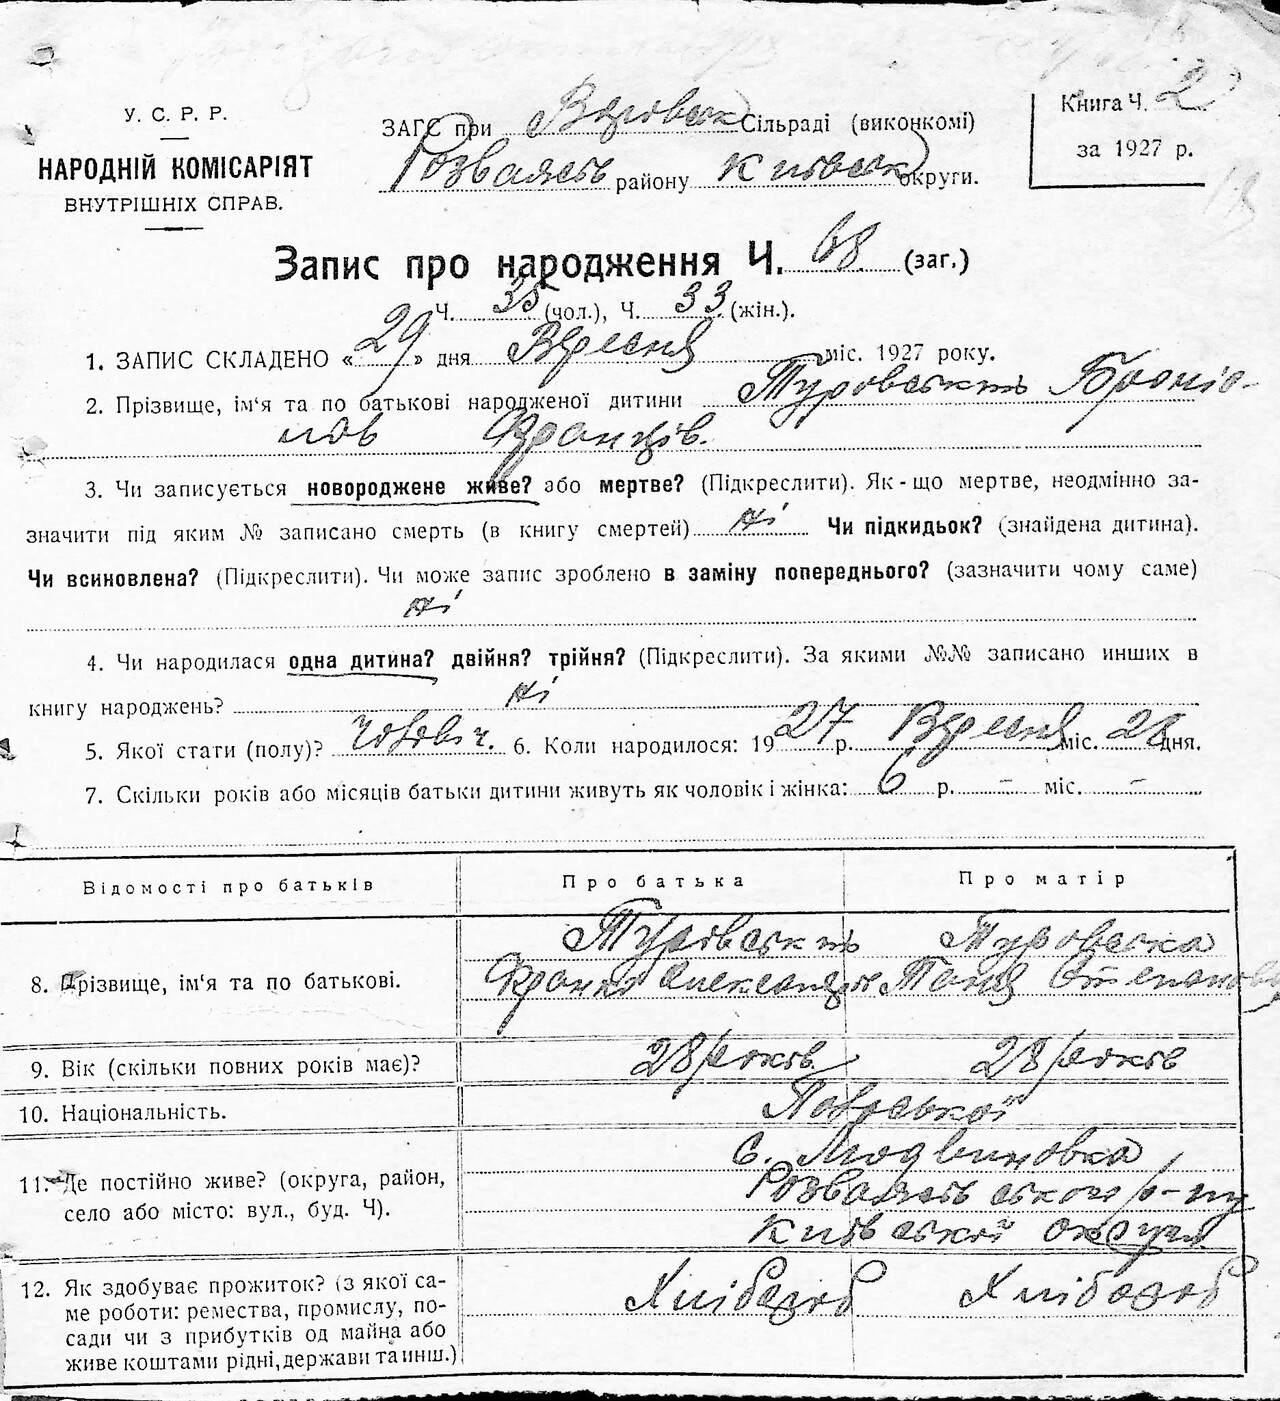 У. С. Р. Р.
НАРОДНІЙ КОМІСАРІЯТ
ВНУТРІШНІХ СПРАВ.
ЗАГС при Сільраді (виконкомі)
району Київськ округи.
Книга Ч. 2
за 1927 р.
Запис про народження Ч. 68 (заг.)
Ч. 35 (чол.), Ч. 33 (жін.).
1. ЗАПИС СКЛАДЕНО « 29 » дня Вересня міс. 1927 року.
2. Прізвище, ім'я та по батькові народженої дитини Туровський Броніс-
лав Франців.
3. Чи записується новороджене живе? або мертве? (Підкреслити). Як-що мертве, неодмінно за-
значити під яким № записано смерть (в книгу смертей) Ні Чи підкидьок? (знайдена дитина).
Чи всиновлена? (Підкреслити). Чи може запис зроблено в заміну попереднього? (зазначити чому саме)
Ні
4. Чи народилася одна дитина? двійня? трійня? (Підкреслити). За якими №№ записано инших в
книгу народжень? Ні
5. Якої стати (полу)? Чоловіч. 6. Коли народилося: 1927 р. Вересня міс. 28 дня.
7. Скільки років або місяців батьки дитини живуть як чоловік і жінка: 6 р. – міс. –
Відомості про батьків Про батька Про матір
8. Прізвище, ім'я та по батькові.
Туровський Туровська
Франко Александр Таня Степанов
9. Вік (скільки повних років має)? 28 років 28 років
10. Національність. Польської
11. Де постійно живе? (округа, район,
село або місто: вул., буд. Ч).
с. Людвиновка
р-ну
Київської округи
12. Як здобуває прожиток? (з якої са-
ме роботи: ремества, промислу, по-
сади чи з прибутків од майна або
живе коштами рідні, держави та инш.)
Хлібороб Хлібороб